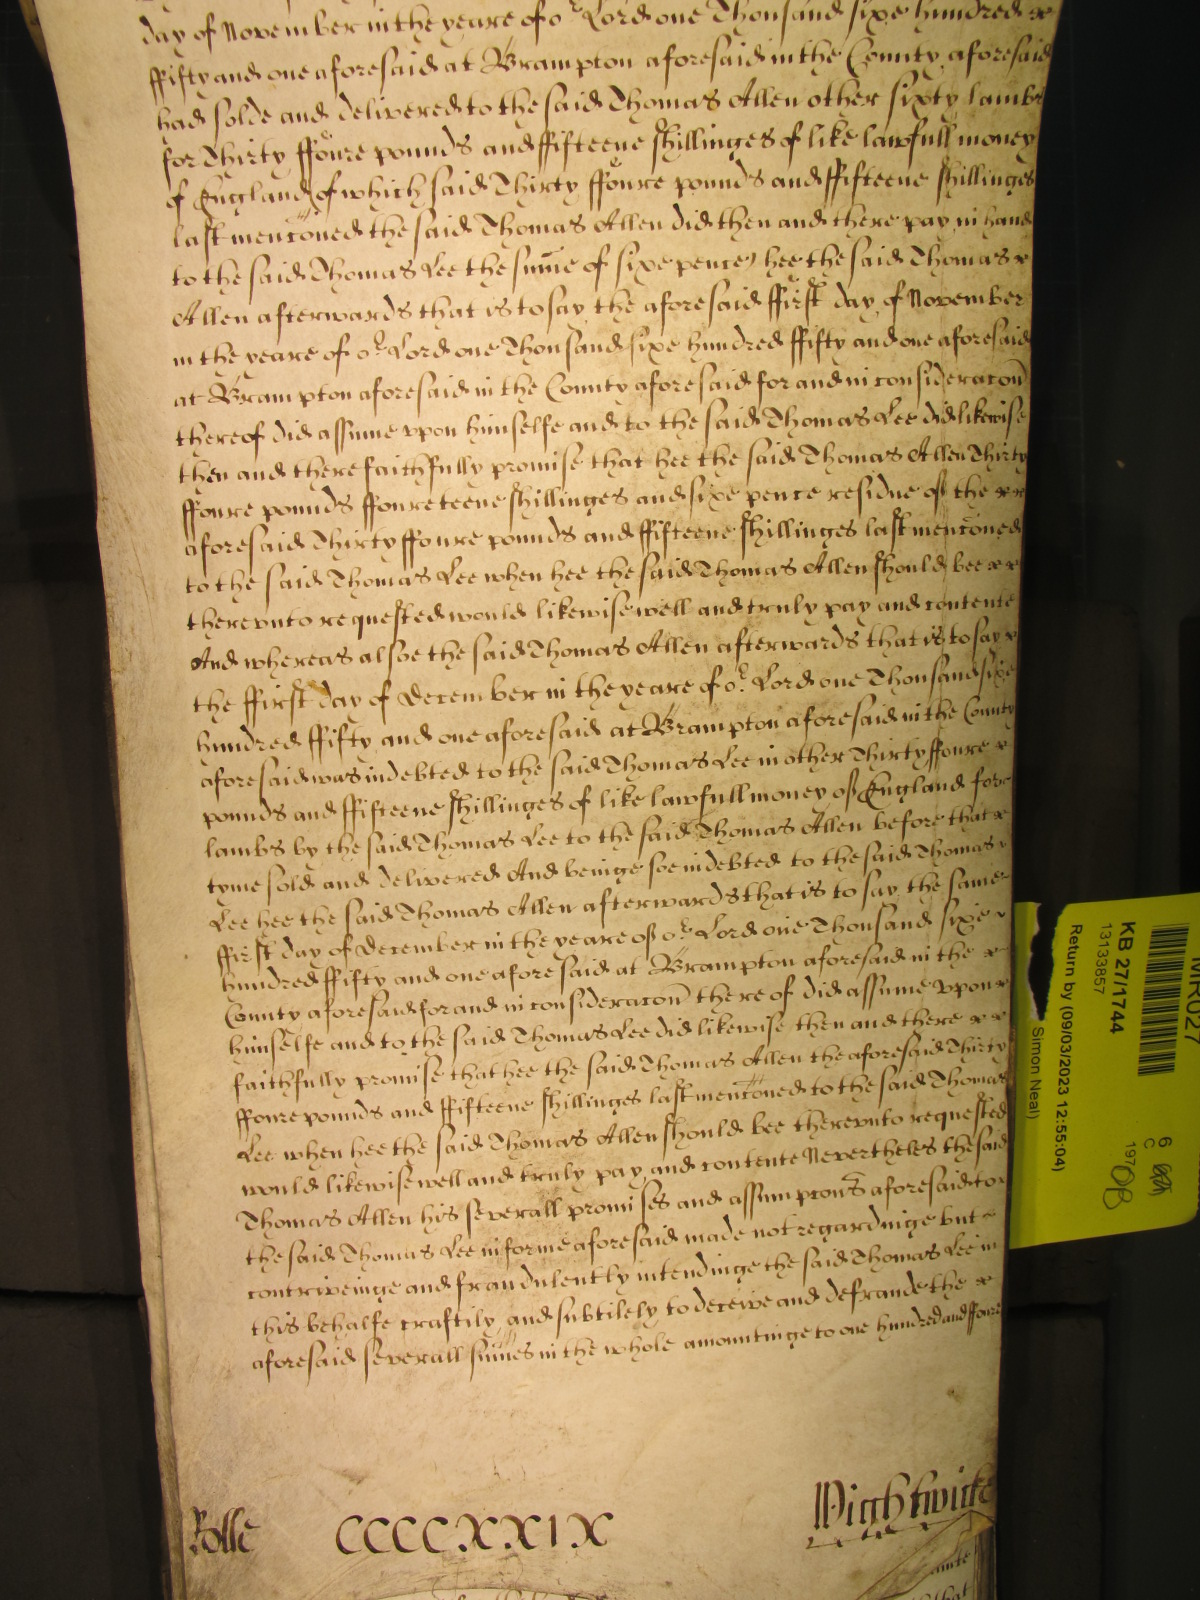 day of November in the yeare of or Lord one Thousand sixe hundred
ffifty and one aforesaid at Brampton aforesaid in the County aforesaid
had solde and delivered to the said Thomas Allen other sixty lambs
for Thirty ffoure pounds and ffifteene shillinges of like lawfull money
of England of which said Thirty ffoure pounds and ffifteene shillinges
last menc̄oned the said Thomas Allen did then and there pay in hand
to the said Thomas Lee the sum̄e of sixe pence) hee the said Thomas
Allen afterwards that is to say the aforesaid ffirst day of November
in the yeare of or Lord one Thousand sixe hundred ffifty and one aforesaid
at Brampton aforesaid in the County aforesaid for and in considerac̄on
thereof did assume vpon himselfe and to the said Thomas Lee did likewise
then and there faithfully promise that hee the said Thomas Allen Thirty
ffoure pounds ffoureteene shillinges and sixe pence residue of the
aforesaid Thirty ffoure pounds and ffifteene shillinges last menc̄oned
to the said Thomas Lee when hee the said Thomas Allen should bee
therevnto requested would likewise well and truly pay and contente
And whereas alsoe the said Thomas Allen afterwards that is to say
the ffirst day of December in the yeare of or Lord one Thousand sixe
hundred ffifty and one aforesaid at Brampton aforesaid in the County
aforesaid was indebted to the said Thomas Lee in other Thirty ffoure
pounds and ffifteene shillinges of like lawfull money of England for
lambs by the said Thomas Lee to the said Thomas Allen before that
tyme sold and delivered And beinge soe indebted to the said Thomas
Lee hee the said Thomas Allen afterwards that is to say the same
ffirst day of December in the yeare of or Lord one Thousand sixe
hundred ffifty and one aforesaid at Brampton aforesaid in the
County aforesaid for and in considerac̄on thereof did assume vpon
himselfe and to the said Thomas Lee did likewise then and there
faithfully promise that hee the said Thomas Allen the aforesaid Thirty
ffoure pounds and ffifteene shillinges last menc̄oned to the said Thomas
Lee when hee the said Thomas Allen should bee therevnto requested
would likewise well and truly pay and contente Nevertheles the said
Thomas Allen his severall promises and assumpc̄ons aforesaid to
the said Thomas Lee in forme aforesaid made not regardinge but
contriveinge and fraudulently intendinge the said Thomas Lee in
this behalfe craftily and subtilely to deceive and defraude the
aforesaid severall sum̄es in the whole amountinge to one hundred and ffoure
Rolle CCCCXXIX Wightwicke
MR027
KB 27/1744
13133857
Return by (09/03/2023 12:55:04)
Simon Neal)
6
C
197
08